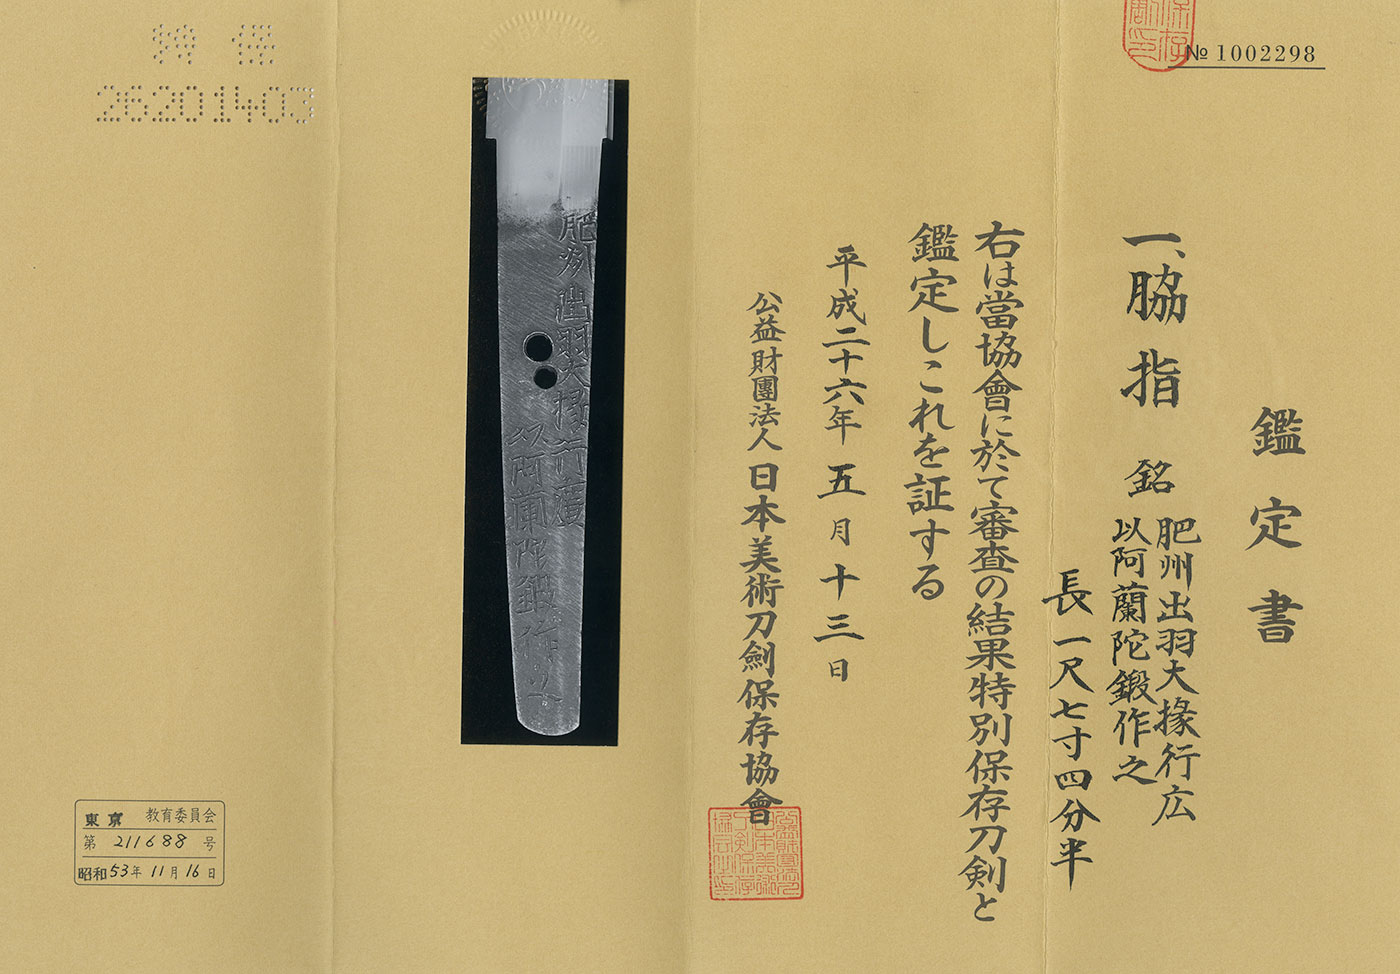 № 1002298
鑑定書
一、脇指 銘 肥州出羽大掾行広
以阿蘭陀鍛作之
長一尺七寸四分半
右は當協會に於て審査の結果特別保存刀剣と
鑑定しこれを証する
平成二十六年五月十三日
公益財團法人日本美術刀劍保存協會
肥州出羽大掾行廣
以阿蘭陀鍛作之
特保
26201403
東京 教育委員会
第 211688 号
昭和53年11月16日